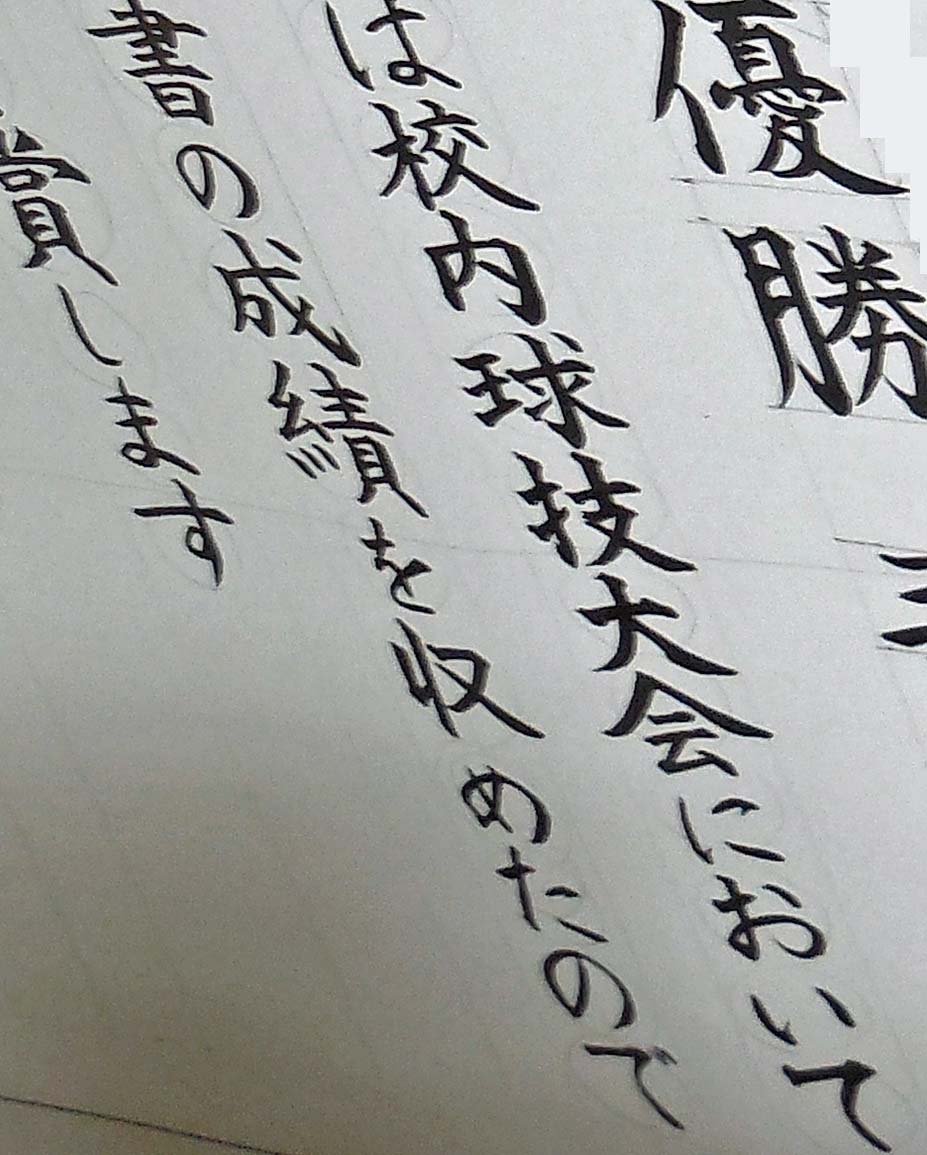 優勝
は校内球技大会において
書の成績を収めたので
賞します